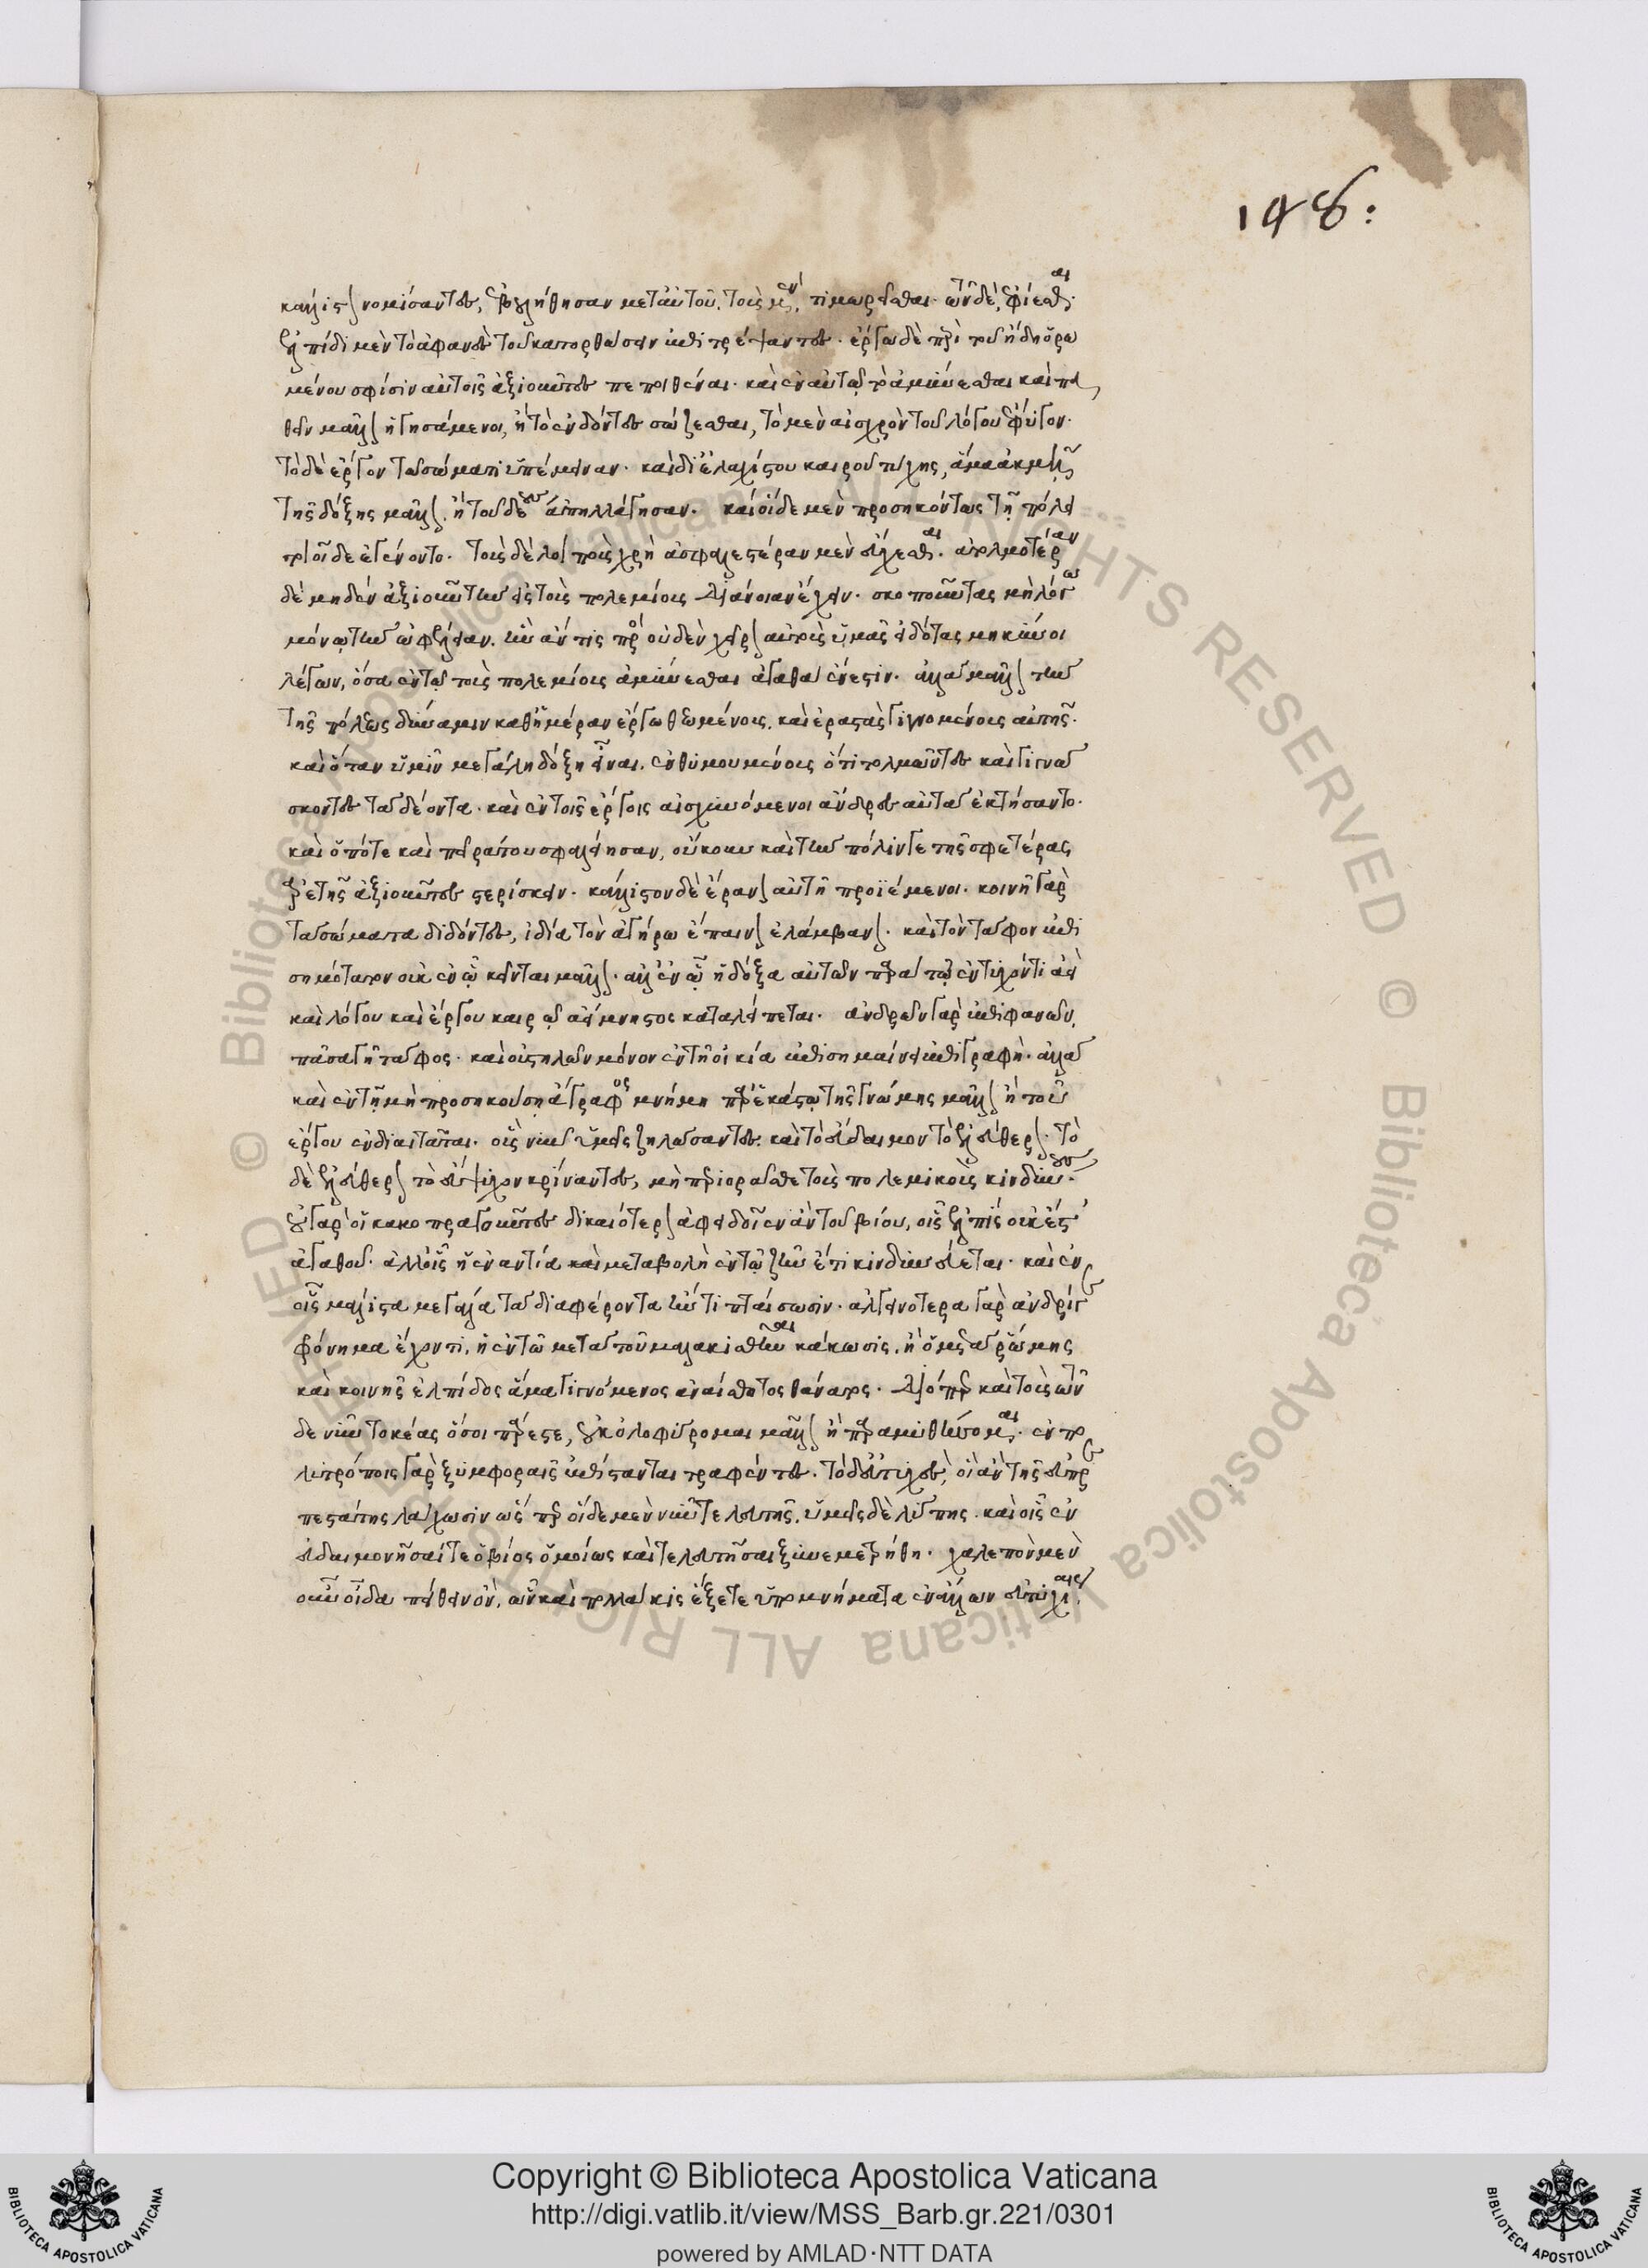 148:
κάλλιστον νομίσαντες, ἐβουλήθησαν μετ' αὐτοῦ τοὺς μὲν τιμωρεῖσθαι. τῶν δὲ, ἐφίεσθαι.
ἐλπίδι μὲν τὸ ἀφανὲς τοῦ κατορθώσειν ἐπιτρέψαντες. ἔργω δὲ περὶ τοῦ ἤδη ὁρω
μένου σφίσιν αὐτοῖς ἀξιοῦντες πεποιθέναι. καὶ ἐν αὐτῶ τὸ ἀμύνεσθαι καὶ πα
θεῖν μᾶλλον ἡγησάμενοι, ἢ τὸ ἐνδόντες σώζεσθαι, τὸ μὲν αἰσχρὸν τοῦ λόγου ἔφυγον.
τὸ δὲ ἔργον τῶ σώματι ὑπέμειναν. καὶ δι' ἐλαχίστου καιροῦ τύχης, ἅμα ἀκμῆ
τῆς δόξης μᾶλλον ἢ τοῦ δέους ἀπηλλάγησαν. καὶ οἵδε μὲν προσηκόντως τῆ πόλει
τοιοίδε ἐγένοντο. τοὺς δὲ λοιποὺς χρὴ ἀσφαλεστέραν μὲν εὔχεσθαι. ἀτολμοτέραν
δὲ μηδὲν ἀξιοῦν τὴν ἐς τοὺς πολεμίους διάνοιαν ἔχειν. σκοποῦντας μὴ λόγω
μόνω τὴν ὠφέλειαν. ἣν ἄν τις πρὸς οὐδὲν χεῖρον αὐτοὺς ὑμᾶς εἰδότας μηκύνοι
λέγων, ὅσα ἐν τῶ τοὺς πολεμίους ἀμύνεσθαι ἀγαθὰ ἔνεστιν. ἀλλὰ μᾶλλον τὴν
τῆς πόλεως δύναμιν καθ' ἡμέραν ἔργω θεωμένους. καὶ ἐραστὰς γιγνομένους αὐτῆς.
καὶ ὅταν ὑμῖν μεγάλη δόξη εἶναι. ἐνθυμουμένους ὅτι τολμῶντες καὶ γιγνώ
σκοντες τὰ δέοντα. καὶ ἐν τοῖς ἔργοις αἰσχυνόμενοι ἄνδρες αὐτὰ ἐκτήσαντο.
καὶ ὁπότε καὶ πείρα του σφαλείησαν, οὔκουν καὶ τὴν πόλιν γε τῆς σφετέρας
ἀρετῆς ἀξιοῦντες στερίσκειν. κάλλιστον δὲ ἔρανον αὐτῆ προϊέμενοι. κοινῆ γὰρ
τὰ σώματα διδόντες, ἰδία τὸν ἀγήρω ἔπαινον ἐλάμβανον. καὶ τὸν τάφον ἐπι
σημότατον οὐκ ἐν ὧ κεῖνται μᾶλλον. ἀλλ' ἐν ὧ ἡ δόξα αὐτῶν παρὰ τῶ ἐντυχόντι ἀεὶ
καὶ λόγου καὶ ἔργου καιρῶ ἀείμνηστος καταλείπεται. ἀνδρῶν γὰρ ἐπιφανῶν,
πᾶσα γῆ τάφος. καὶ οὐ στηλῶν μόνον ἐν τῆ οἰκία ἐπισημαίνει ἐπιγραφή. ἀλλὰ
καὶ ἐν τῆ μὴ προσηκούση ἄγραφος μνήμη παρ' ἑκάστω τῆς γνώμης μᾶλλον ἢ τοῦ
ἔργου ἐνδιαιτᾶται. οὓς νῦν ὑμεῖς ζηλώσαντες. καὶ τὸ εὔδαιμον τὸ ἐλεύθερον. τὸ
δὲ ἐλεύθερον τὸ εὔψυχον κρίναντες, μὴ περιορᾶσθε τοὺς πολεμικοὺς κινδύνους.
οὐ γὰρ οἱ κακοπραγοῦντες δικαιότερον ἀφειδοῖεν ἂν τοῦ βίου, οἷς ἐλπὶς οὐκ ἔστ'
ἀγαθοῦ. ἀλλ' οἷς ἡ ἐναντία καὶ μεταβολὴ ἐν τῶ ζῆν ἔτι κινδυνεύεται. καὶ ἐν
οἷς μάλιστα μεγάλα τὰ διαφέροντα ἤν τι πταίσωσιν. ἀλγεινοτέρα γὰρ ἀνδρί γε
φρόνημα ἔχοντι, ἡ ἐν τῶ μετὰ τοῦ μαλακισθῆναι κάκωσις, ἢ ὁ μετὰ ῥώμης
καὶ κοινῆς ἐλπίδος ἅμα γιγνόμενος ἀναίσθητος θάνατος. διόπερ καὶ τοὺς τῶν
δε νῦν τοκέας ὅσοι πάρεστε, οὐκ ὀλοφύρομαι μᾶλλον ἢ παραμυθήσομαι. ἐν πο
λυτρόποις γὰρ ξυμφοραῖς ἐπίστανται τραφέντες. τὸ δ' εὐτυχὲς, οἳ ἂν τῆς εὐπρε
πεστάτης λάχωσιν ὥσπερ οἵδε μὲν νῦν τελευτῆς, ὑμεῖς δὲ λύπης. καὶ οἷς ἐν
ευδαιμονῆσαί τε ὁ βίος ὁμοίως καὶ τελευτῆσαι ξυνεμετρήθη. χαλεπὸν μὲν
οὖν οἶδα πείθειν ὂν, ὧν καὶ πολλάκις ἕξετε ὑπομνήματα ἐν ἄλλων εὐτυχίαις
Copyright © Biblioteca Apostolica Vaticana
http://digi.vatlib.it/view/MSS_Barb.gr.221/0301
powered by AMLAD·NTT DATA